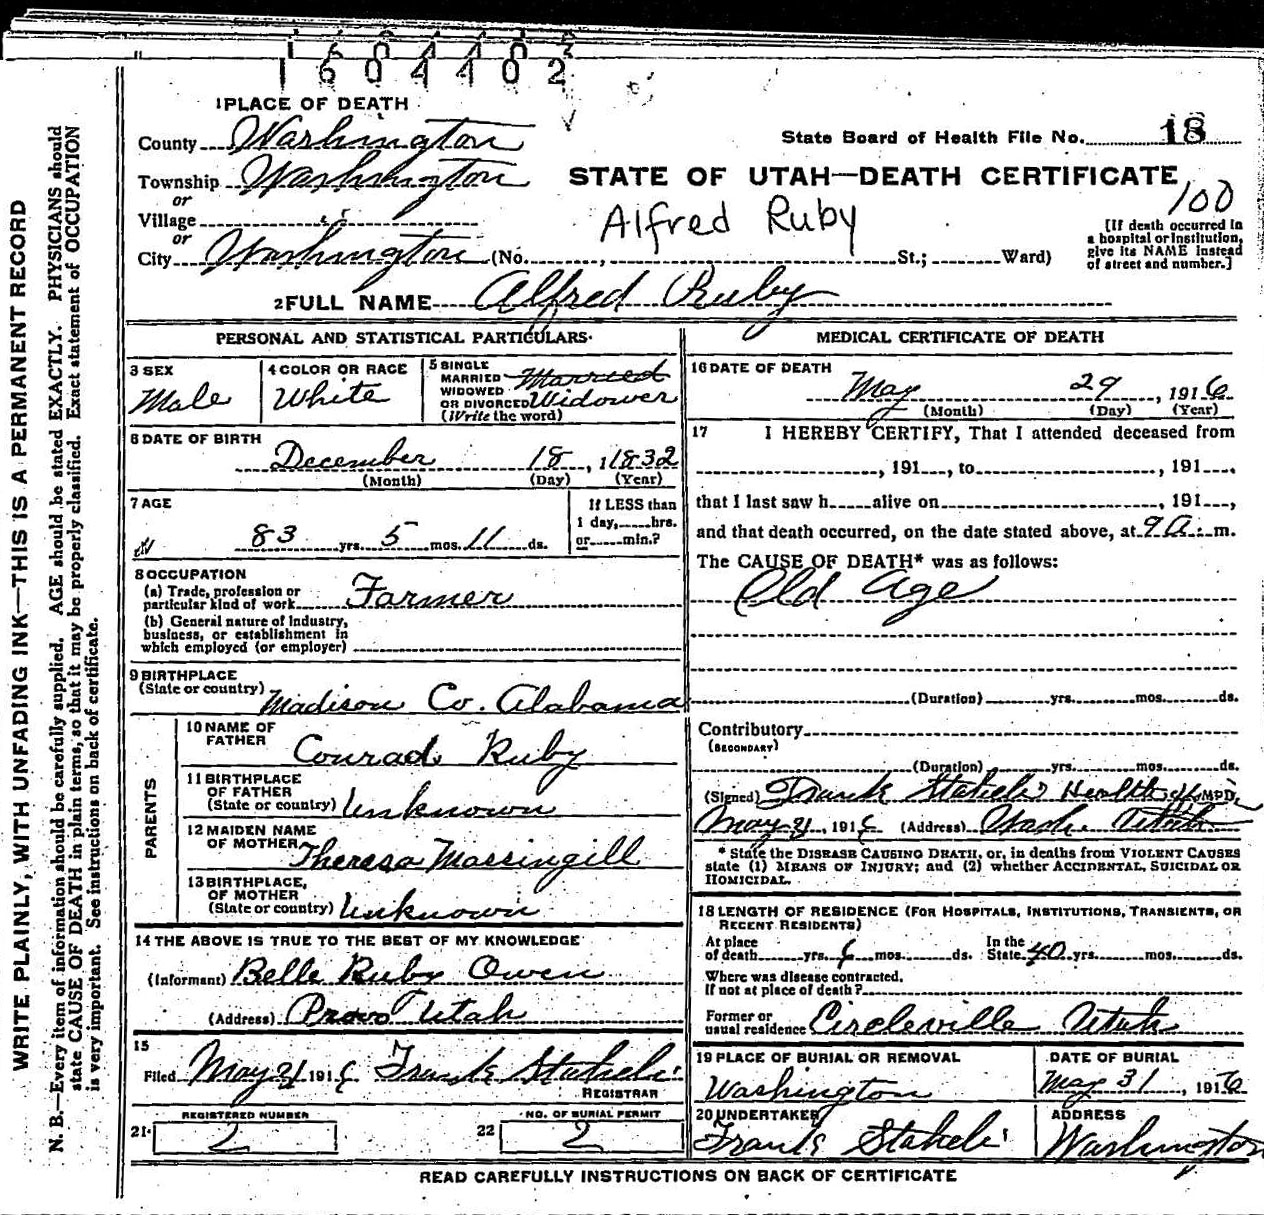 1604402
1 PLACE OF DEATH
County Washington
State Board of Health File No. 18
Township Washington
or
STATE OF UTAH—DEATH CERTIFICATE
100
Village " "
or
Alfred Ruby
City Washington (No. , St.; Ward)
[If death occurred in a hospital or institution, give its NAME instead of street and number.]
2 FULL NAME Alfred Ruby
PERSONAL AND STATISTICAL PARTICULARS
3 SEX
Male
4 COLOR OR RACE
White
5 SINGLE
MARRIED
WIDOWED
OR DIVORCED
(Write the word)
Married
Widower
6 DATE OF BIRTH
December 18, 1 1832
(Month) (Day) (Year)
7 AGE
83 yrs. 5 mos. 11 ds.
If LESS than
1 day, hrs.
or min.?
8 OCCUPATION
(a) Trade, profession or
particular kind of work Farmer
(b) General nature of Industry,
business, or establishment in
which employed (or employer)
9 BIRTHPLACE
(State or country) Madison Co. Alabama
PARENTS
10 NAME OF
FATHER Conrad Ruby
11 BIRTHPLACE
OF FATHER
(State or country) Unknown
12 MAIDEN NAME
OF MOTHER Theresa Massingill
13 BIRTHPLACE,
OF MOTHER
(State or country) Unknown
14 THE ABOVE IS TRUE TO THE BEST OF MY KNOWLEDGE
(Informant) Belle Ruby Owen
(Address) Provo Utah
15
Filed May 31 1916 Frank Staheli
REGISTRAR
REGISTERED NUMBER
21. 2
NO. OF BURIAL PERMIT
22 2
MEDICAL CERTIFICATE OF DEATH
16 DATE OF DEATH
May 29, 1916
(Month) (Day) (Year)
17 I HEREBY CERTIFY, That I attended deceased from
, 191 , to , 191 ,
that I last saw h alive on , 191 ,
and that death occurred, on the date stated above, at 9 a. m.
The CAUSE OF DEATH* was as follows:
Old age
(Duration) yrs. mos. ds.
Contributory
(SECONDARY)
(Duration) yrs. mos. ds.
(Signed) Frank Staheli Health M.D.
May 31, 1916 (Address) Wash. Utah
* State the DISEASE CAUSING DEATH, or, in deaths from VIOLENT CAUSES
state (1) MEANS OF INJURY; and (2) whether ACCIDENTAL, SUICIDAL OR
HOMICIDAL.
18 LENGTH OF RESIDENCE (FOR HOSPITALS, INSTITUTIONS, TRANSIENTS, OR
RECENT RESIDENTS)
At place
of death yrs. 6 mos. ds.
In the
State 40 yrs. mos. ds.
Where was disease contracted.
If not at place of death?
Former or
usual residence Circleville Utah
19 PLACE OF BURIAL OR REMOVAL
Washington
DATE OF BURIAL
May 31, 1916
20 UNDERTAKER
Frank Staheli
ADDRESS
Washington
READ CAREFULLY INSTRUCTIONS ON BACK OF CERTIFICATE
WRITE PLAINLY, WITH UNFADING INK—THIS IS A PERMANENT RECORD
N. B.—Every item of information should be carefully supplied. AGE should be stated EXACTLY. PHYSICIANS should
state CAUSE OF DEATH in plain terms, so that it may be properly classified. Exact statement of OCCUPATION
is very important. See instructions on back of certificate.